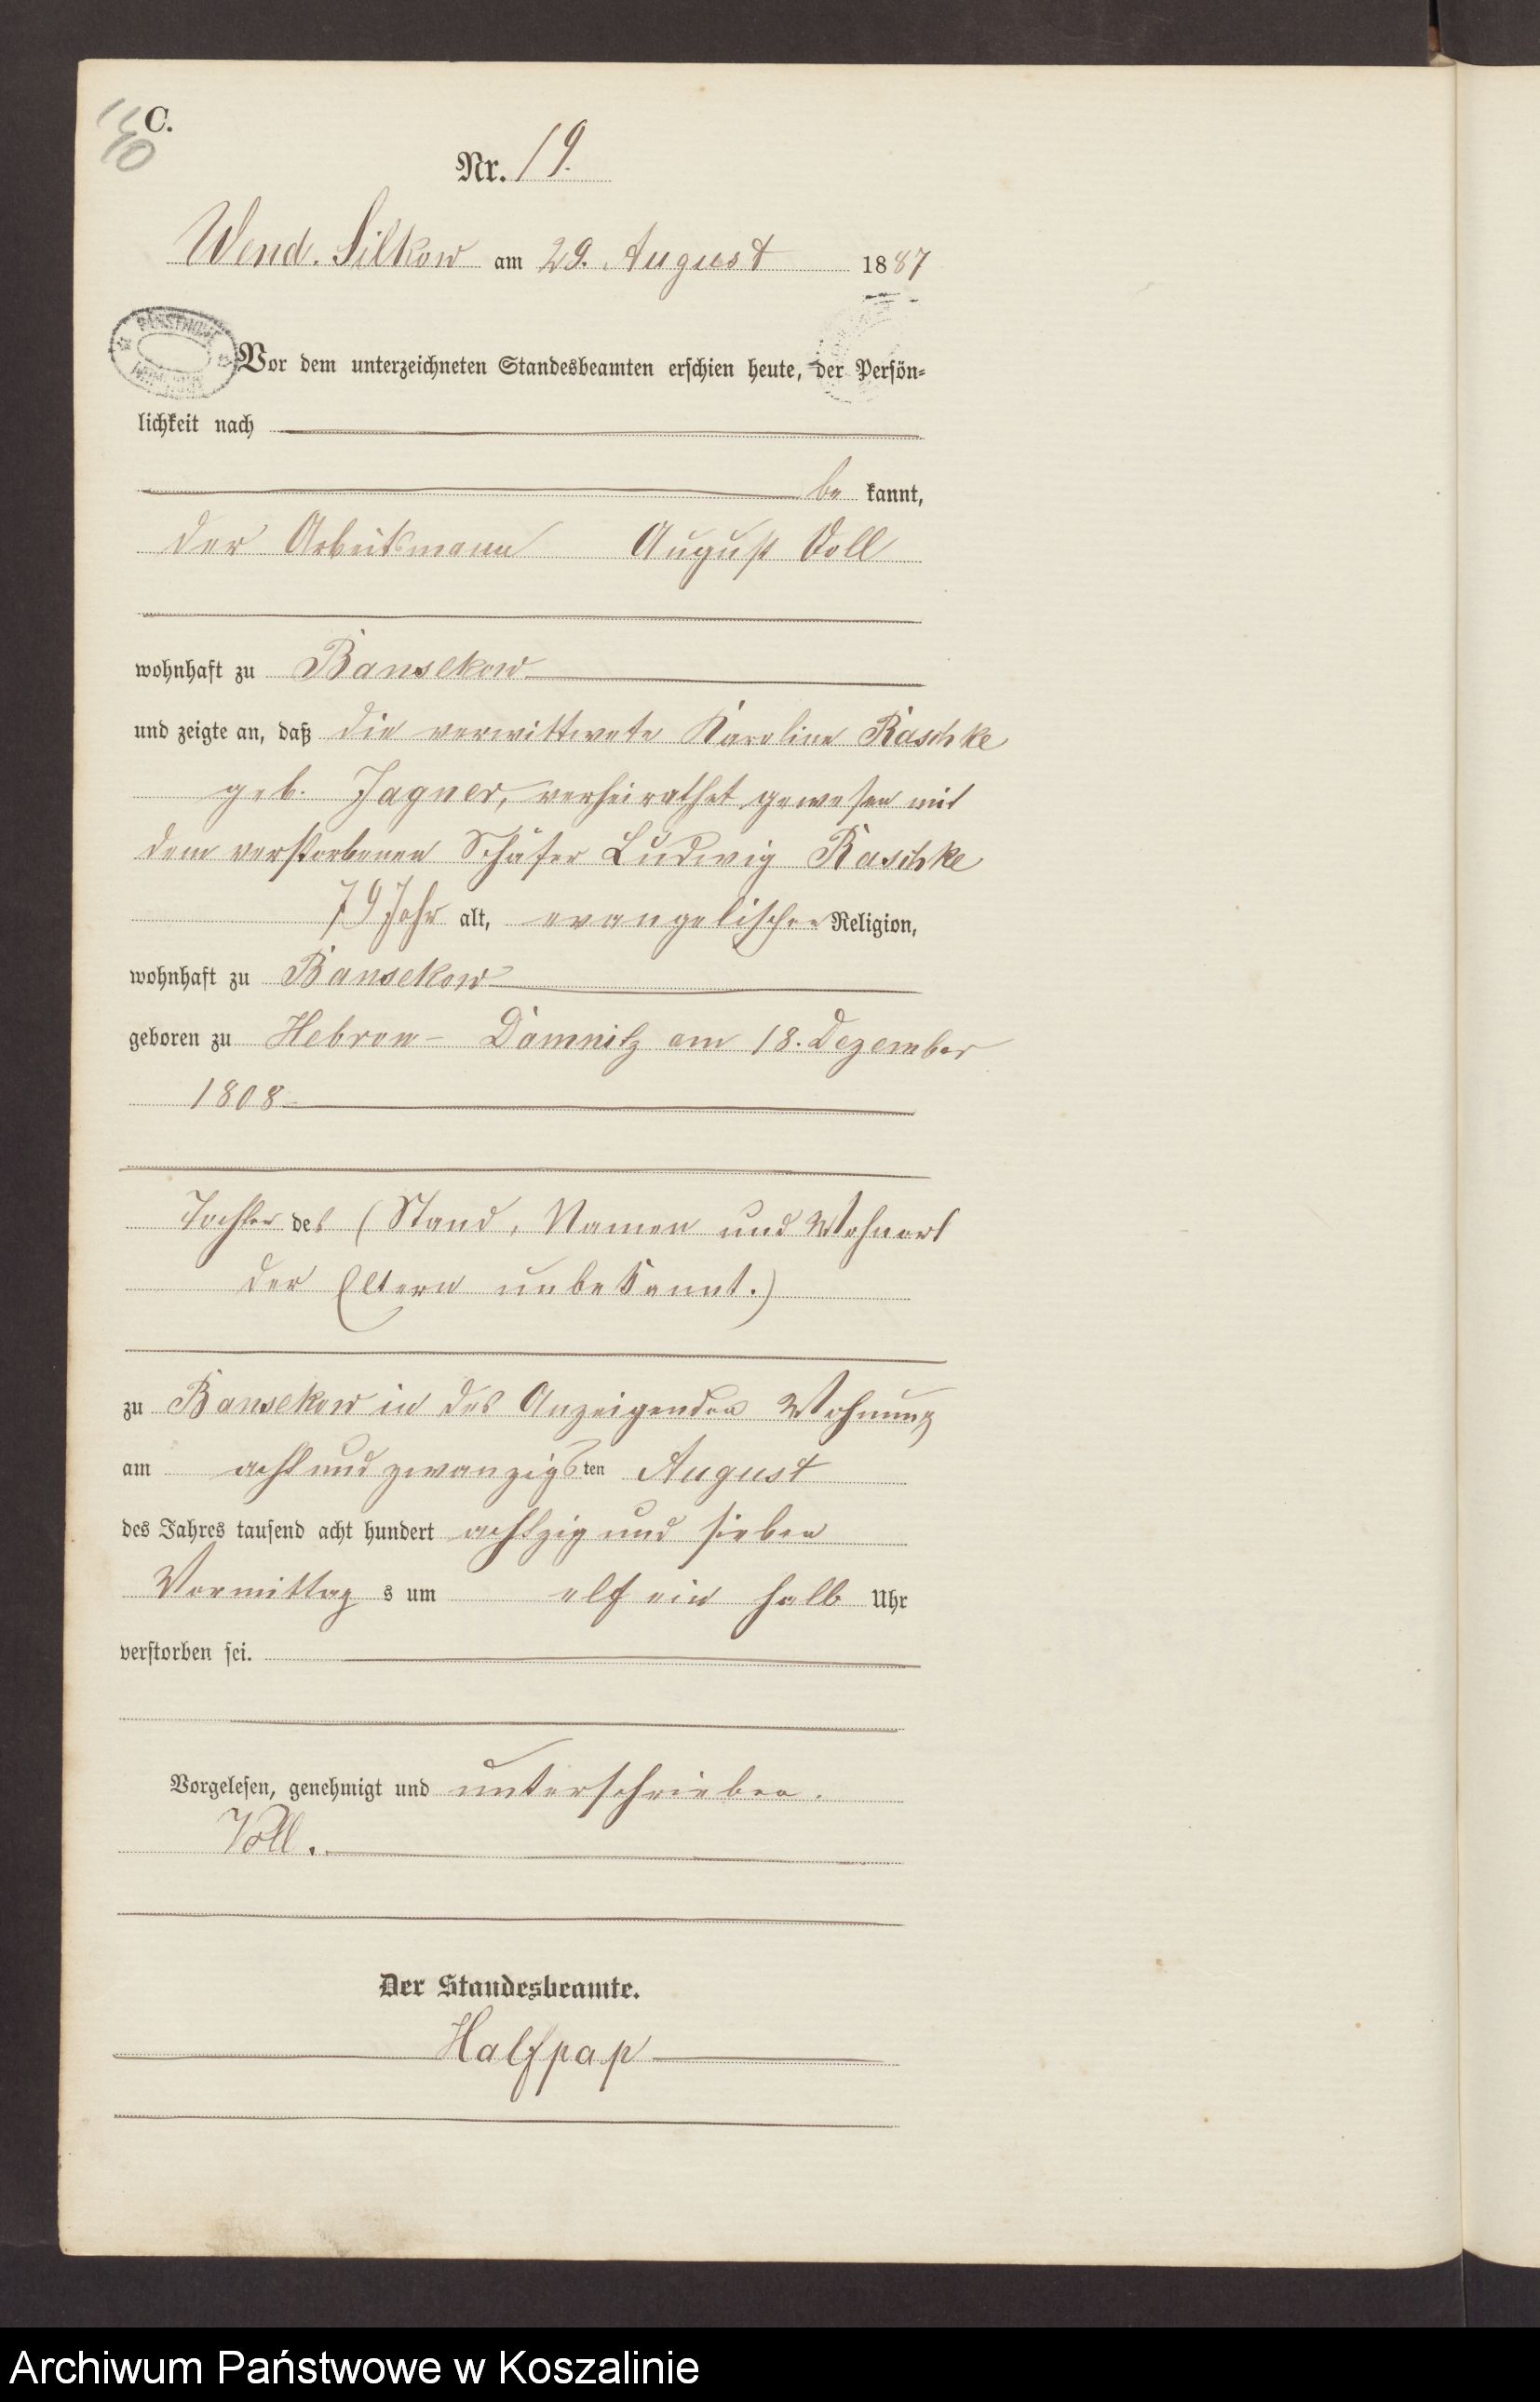 C.
Nr. 19.
Wend. Silkow am 29. August 1887
PAŃSTWOWE
Vor dem unterzeichneten Standesbeamten erschien heute, der Persön-
lichkeit nach
be kannt,
der Arbeitsmann August Voll
wohnhaft zu Bansekow
und zeigte an, daß die verwittwete Karoline Raschke
geb. Jagner, verheirathet gewesen mit
dem verstorbenen Schäfer Ludwig Raschke
79 Jahr alt, evangelischer Religion,
wohnhaft zu Bansekow
geboren zu Hebron-Damnitz am 18. Dezember
1808
Tochter des (Stand, Namen und Wohnort
der Eltern unbekannt.)
zu Bansekow in des Anzeigenden Wohnung
am acht und zwanzigsten August
des Jahres tausend acht hundert achtzig und sieben
Vormittag s um elf ein halb Uhr
verstorben sei.
Vorgelesen, genehmigt und unterschrieben.
Voll.
Der Standesbeamte.
Halfpap
Archiwum Państwowe w Koszalinie